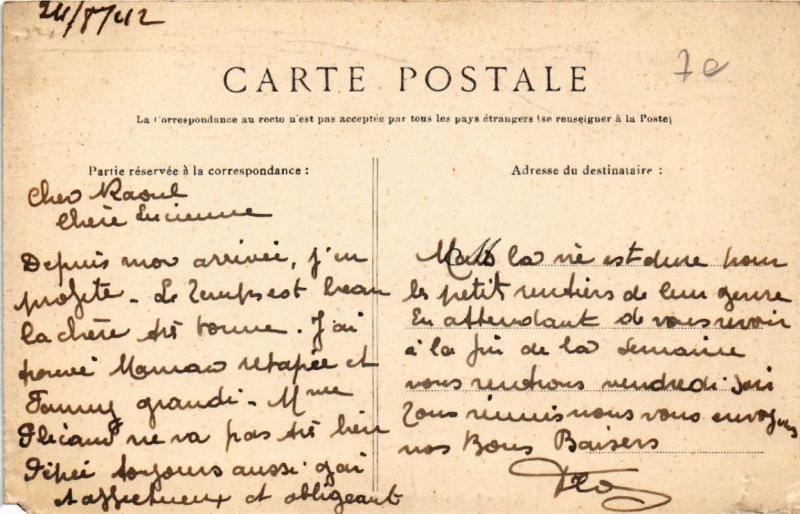 24/8/42
70
CARTE POSTALE
La Correspondance au recto n'est pas acceptée par tous les pays étrangers (se renseigner à la Poste)
Partie réservée à la correspondance :
Cher Raoul
Chère Lucienne
Depuis mon arrivée, j'en
profite - Le temps est beau
la chère très bonne. J'ai
trouvé Maman retapée et
Fanny grandi - Mme
ne va pas très bien
Pépée toujours aussi gai
et affectueux et obligeant
Adresse du destinataire :
Mais la vie est dure pour
les petit rentiers de leur genre
En attendant de vous revoir
à la fin de la semaine
nous rentrons vendredi soir
Tous réunis nous vous envoyons
nos Bons Baisers